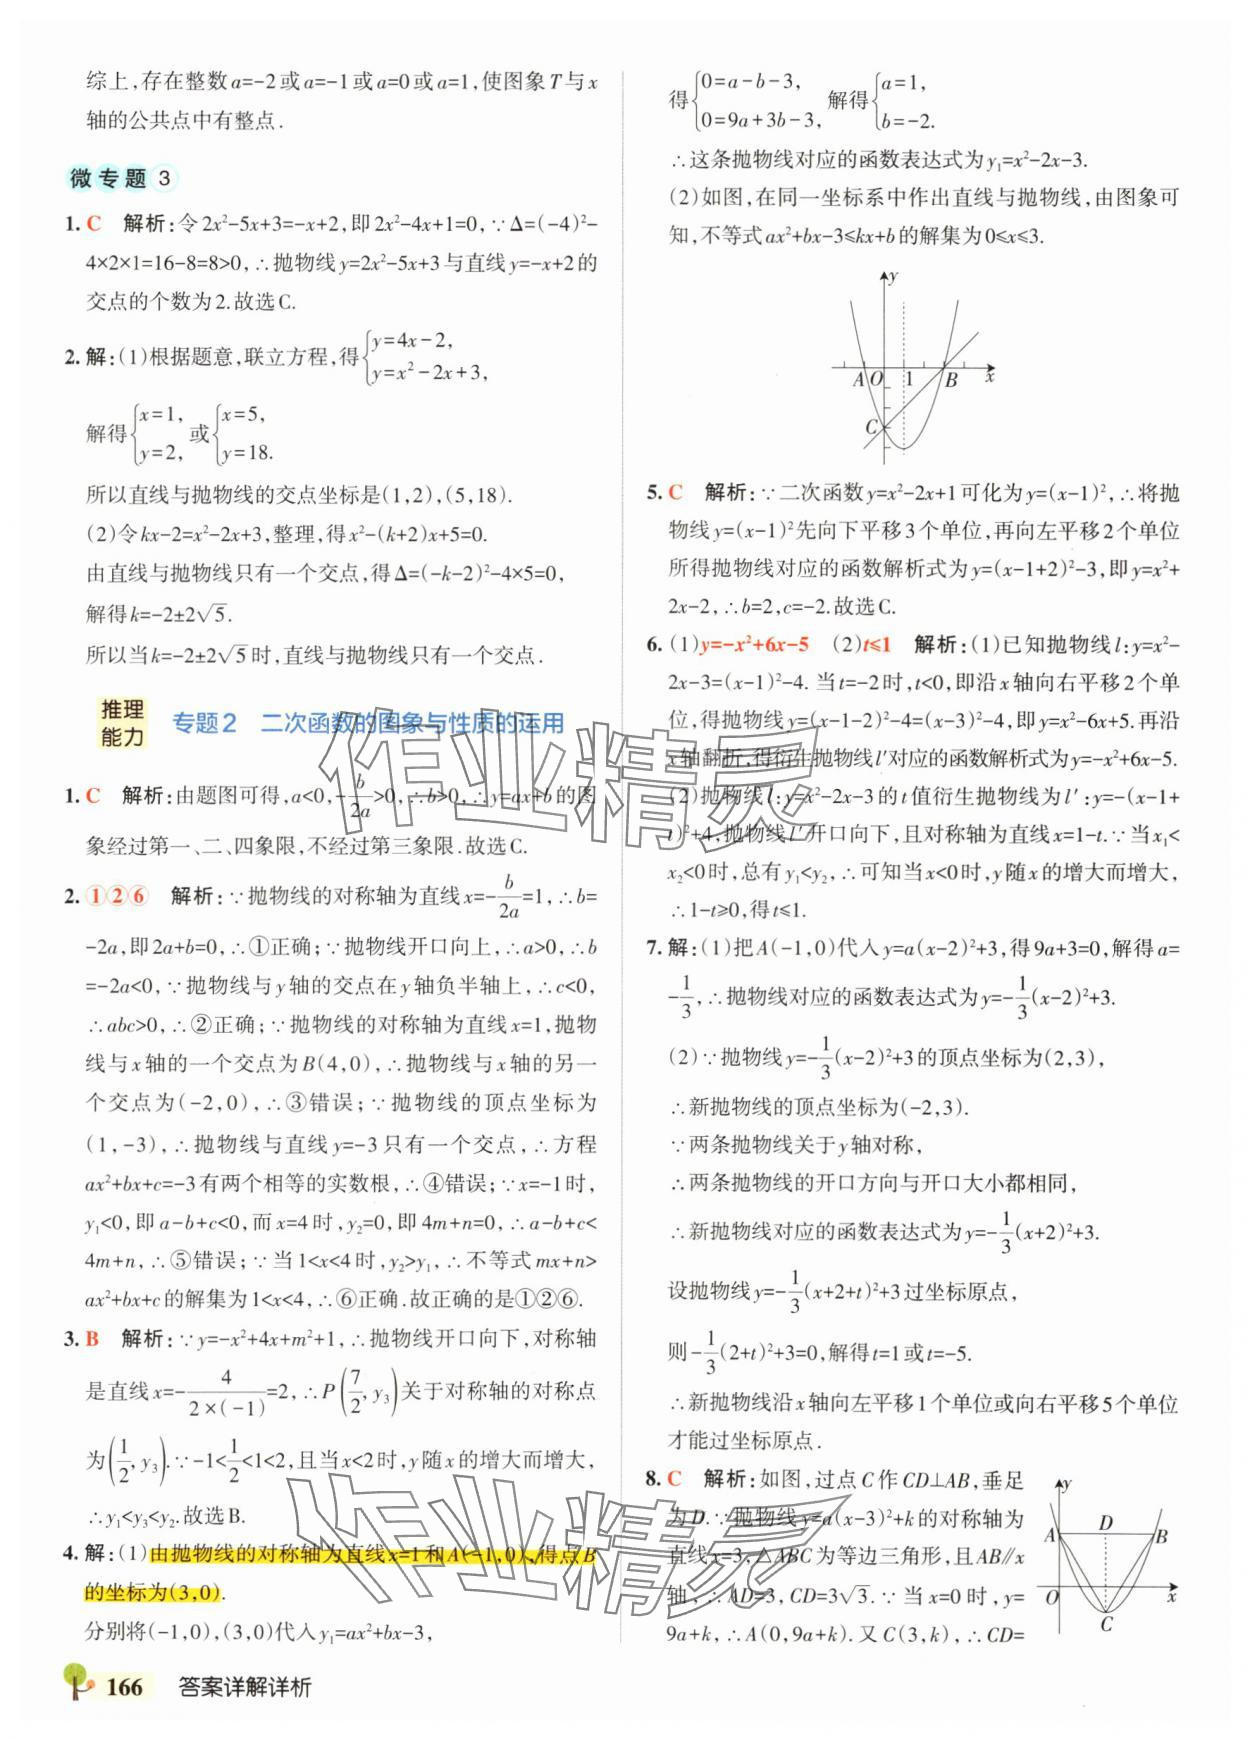 综上,存在整数a=-2或a=-1或a=0或a=1,使图象T与x
轴的公共点中有整点.
微专题3
1. C 解析:令2x²-5x+3=-x+2,即2x²-4x+1=0,∵Δ=(-4)²-
4×2×1=16-8=8>0,∴抛物线y=2x²-5x+3与直线y=-x+2的
交点的个数为2.故选C.
2. 解:(1)根据题意,联立方程,得{y=4x-2, y=x²-2x+3,
解得{x=1, y=2, 或{x=5, y=18.
所以直线与抛物线的交点坐标是(1,2),(5,18).
(2)令kx-2=x²-2x+3,整理,得x²-(k+2)x+5=0.
由直线与抛物线只有一个交点,得Δ=(-k-2)²-4×5=0,
解得k=-2±2√5.
所以当k=-2±2√5时,直线与抛物线只有一个交点.
推理能力 专题2 二次函数的图象与性质的运用
1. C 解析:由题图可得,a<0,-b/2a>0,∴b>0,∴y=ax+b的图
象经过第一、二、四象限,不经过第三象限.故选C.
2. ①②⑥ 解析:∵抛物线的对称轴为直线x=-b/2a=1,∴b=
-2a,即2a+b=0,∴①正确;∵抛物线开口向上,∴a>0,∴b
=-2a<0,∵抛物线与y轴的交点在y轴负半轴上,∴c<0,
∴abc>0,∴②正确;∵抛物线的对称轴为直线x=1,抛物
线与x轴的一个交点为B(4,0),∴抛物线与x轴的另一
个交点为(-2,0),∴③错误;∵抛物线的顶点坐标为
(1,-3),∴抛物线与直线y=-3只有一个交点,∴方程
ax²+bx+c=-3有两个相等的实数根,∴④错误;∵x=-1时,
y₁<0,即a-b+c<0,而x=4时,y₂=0,即4m+n=0,∴a-b+c<
4m+n,∴⑤错误;∵当1<x<4时,y₂>y₁,∴不等式mx+n>
ax²+bx+c的解集为1<x<4,∴⑥正确.故正确的是①②⑥.
3. B 解析:∵y=-x²+4x+m²+1,∴抛物线开口向下,对称轴
是直线x=-4/(2×(-1))=2,∴P(7/2,y₃)关于对称轴的对称点
为(1/2,y₃).∵-1<1/2<1<2,且当x<2时,y随x的增大而增大,
∴y₁<y₃<y₂.故选B.
4. 解:(1)由抛物线的对称轴为直线x=1和A(-1,0),得点B
的坐标为(3,0).
分别将(-1,0),(3,0)代入y₁=ax²+bx-3,
166 答案详解详析
得{0=a-b-3, 0=9a+3b-3, 解得{a=1, b=-2.
∴这条抛物线对应的函数表达式为y₁=x²-2x-3.
(2)如图,在同一坐标系中作出直线与抛物线,由图象可
知,不等式ax²+bx-3≤kx+b的解集为0≤x≤3.
y
A O 1 B x
C
5. C 解析:∵二次函数y=x²-2x+1可化为y=(x-1)²,∴将抛
物线y=(x-1)²先向下平移3个单位,再向左平移2个单位
所得抛物线对应的函数解析式为y=(x-1+2)²-3,即y=x²+
2x-2,∴b=2,c=-2.故选C.
6. (1)y=-x²+6x-5 (2)t≤1 解析:(1)已知抛物线l:y=x²-
2x-3=(x-1)²-4.当t=-2时,t<0,即沿x轴向右平移2个单
位,得抛物线y=(x-1-2)²-4=(x-3)²-4,即y=x²-6x+5.再沿
x轴翻折,得衍生抛物线l′对应的函数解析式为y=-x²+6x-5.
(2)抛物线l:y=x²-2x-3的t值衍生抛物线为l′:y=-(x-1+
t)²+4,抛物线l′开口向下,且对称轴为直线x=1-t.∵当x₁<
x₂<0时,总有y₁<y₂,∴可知当x<0时,y随x的增大而增大,
∴1-t≥0,得t≤1.
7. 解:(1)把A(-1,0)代入y=a(x-2)²+3,得9a+3=0,解得a=
-1/3,∴抛物线对应的函数表达式为y=-1/3(x-2)²+3.
(2)∵抛物线y=-1/3(x-2)²+3的顶点坐标为(2,3),
∴新抛物线的顶点坐标为(-2,3).
∵两条抛物线关于y轴对称,
∴两条抛物线的开口方向与开口大小都相同,
∴新抛物线对应的函数表达式为y=-1/3(x+2)²+3.
设抛物线y=-1/3(x+2+t)²+3过坐标原点,
则-1/3(2+t)²+3=0,解得t=1或t=-5.
∴新抛物线沿x轴向左平移1个单位或向右平移5个单位
才能过坐标原点.
8. C 解析:如图,过点C作CD⊥AB,垂足
为D.∵抛物线y=a(x-3)²+k的对称轴为
直线x=3,△ABC为等边三角形,且AB∥x
轴,∴AD=3,CD=3√3.∵当x=0时,y=
9a+k,∴A(0,9a+k).又C(3,k),∴CD=
y
A D B
O x
C
作业精灵
作业精灵